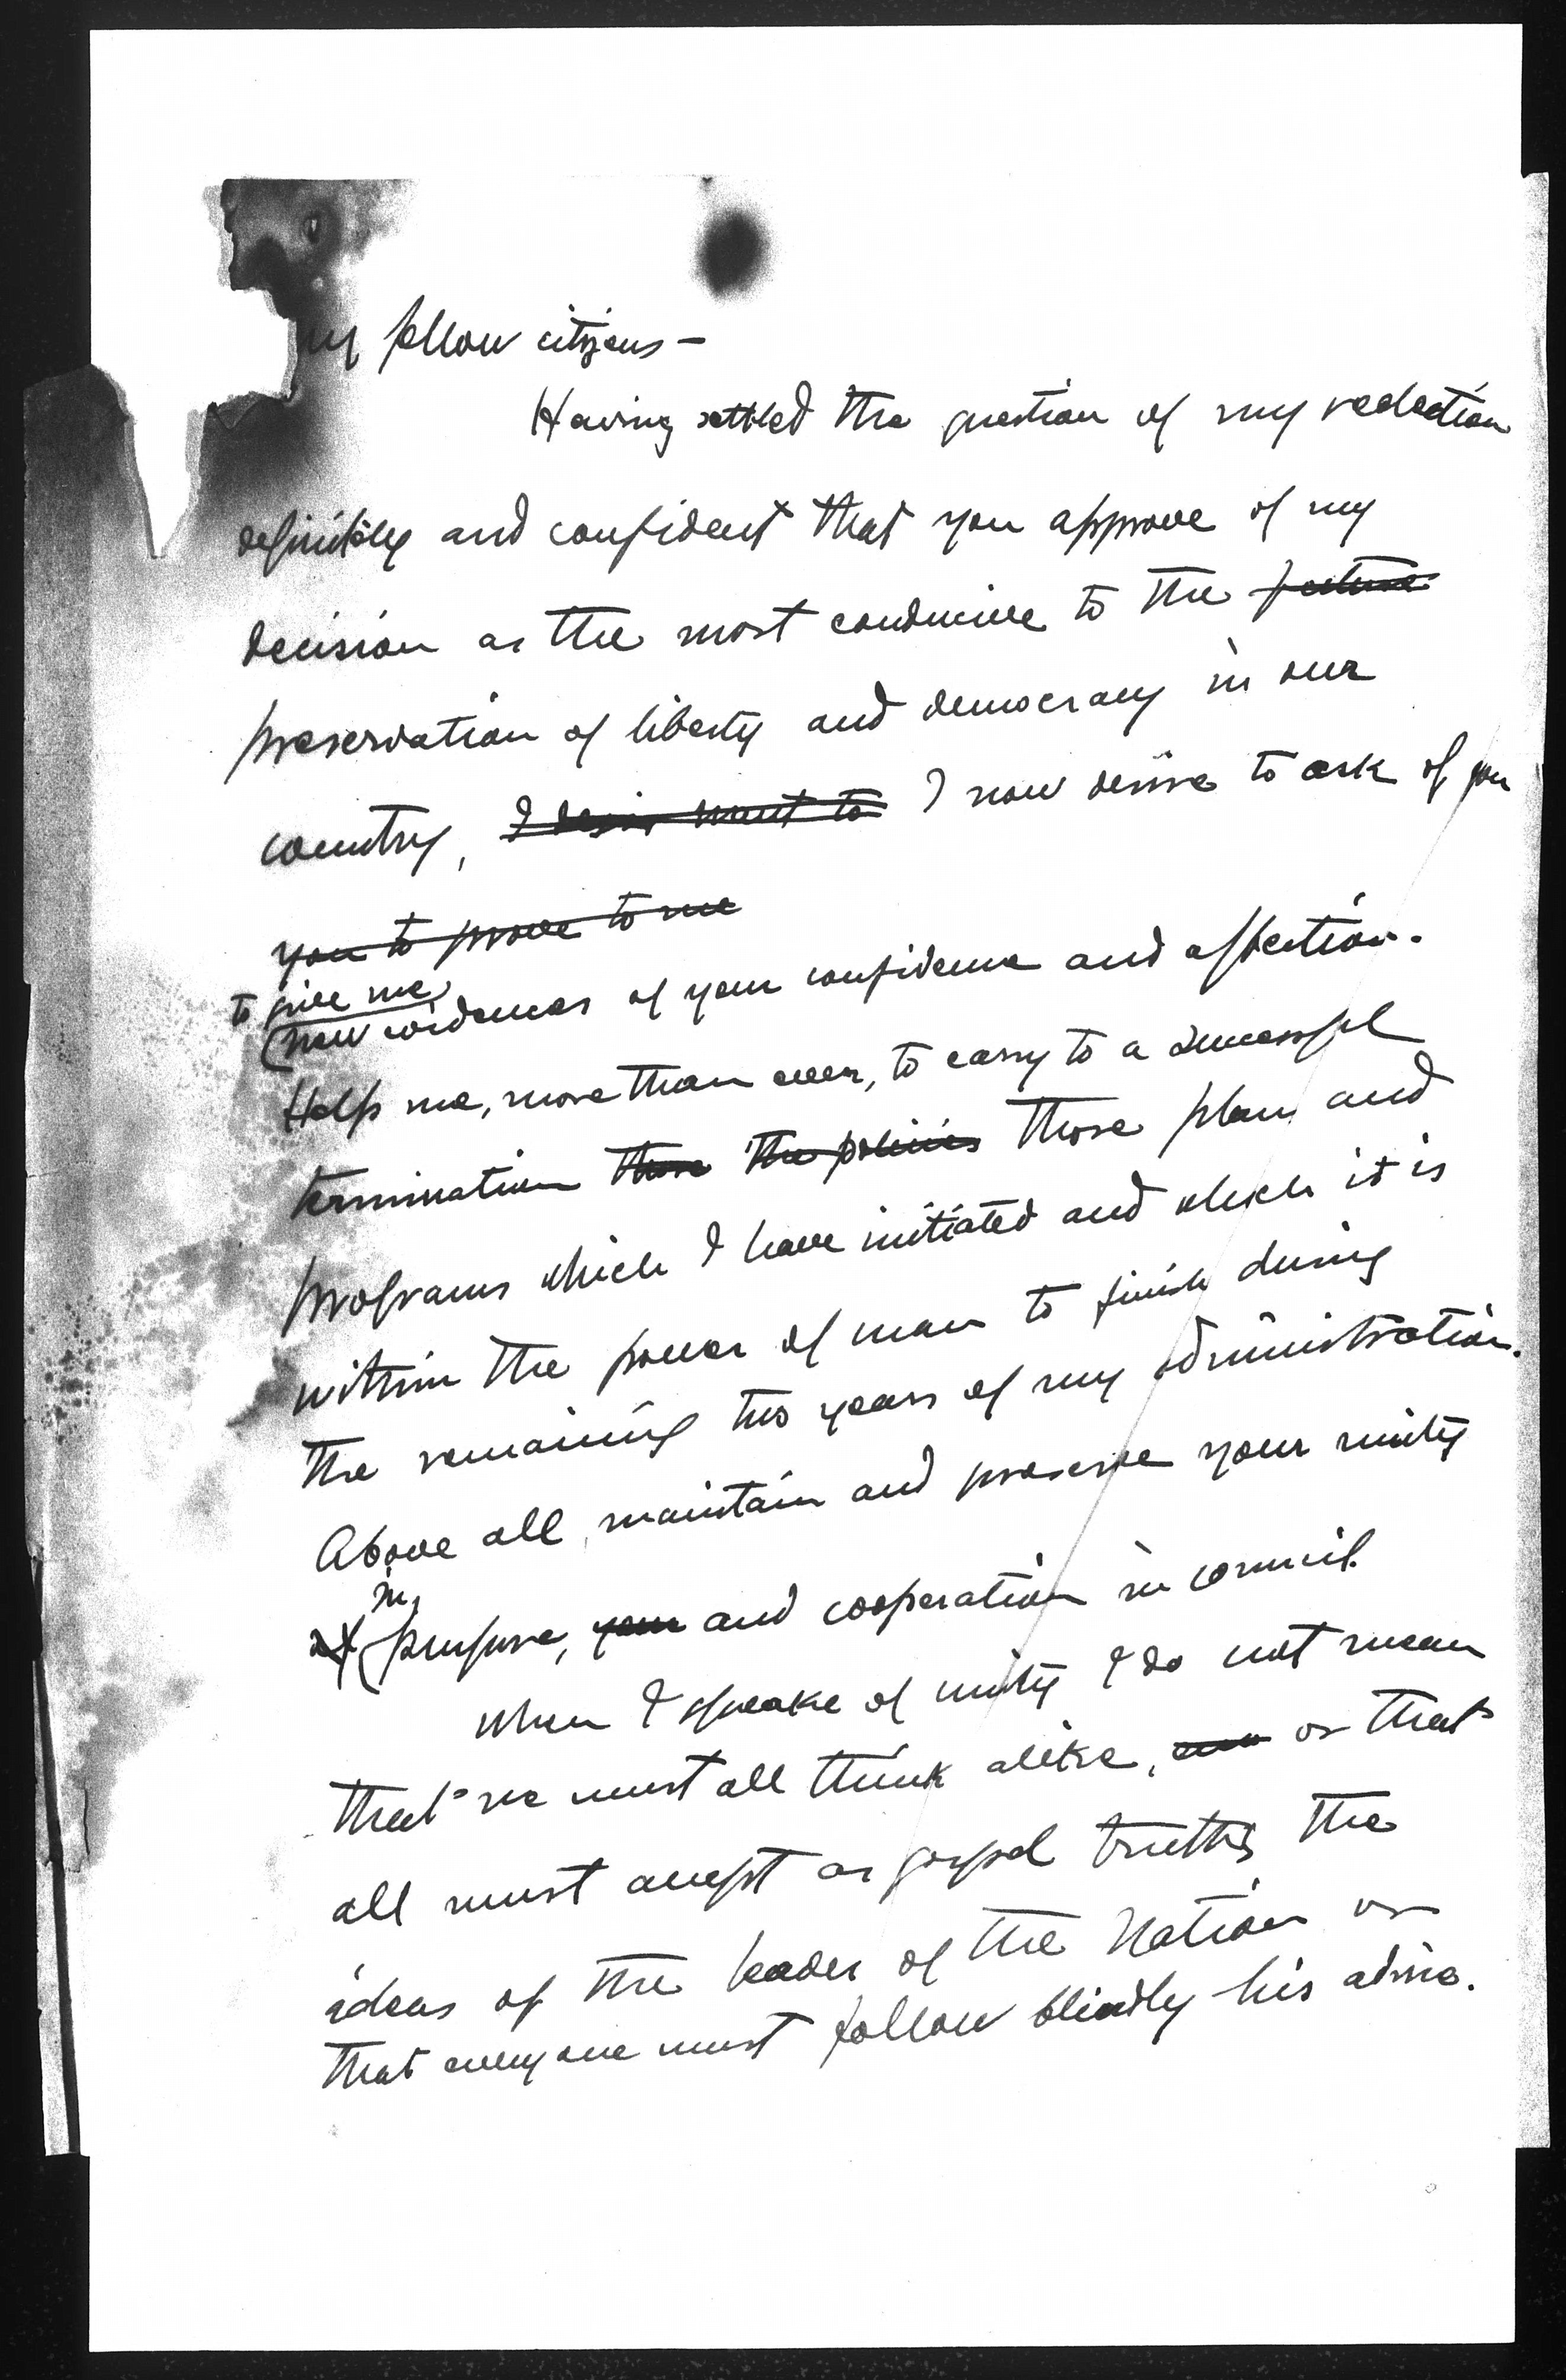 my fellow citizens —
Having settled the question of my reelection
definitely and confident that you approve of my
decision as the most conducive to the future
preservation of liberty and democracy in our
country, I desire want to I now desire to ask of you
you to prove to me
to give me
new evidences of your confidence and affection.
Help me, more than ever, to carry to a successful
termination those the policies those plans and
programs which I have initiated and which it is
within the power of man to finish during
the remaining two years of my administration.
Above all, maintain and preserve your unity
in
of purpose, your and cooperation in council.
When I speake of unity I do not mean
that we must all think alike, or that
all must accept as gospel truths the
ideas of the leader of the Nation or
that everyone must follow blindly his advice.